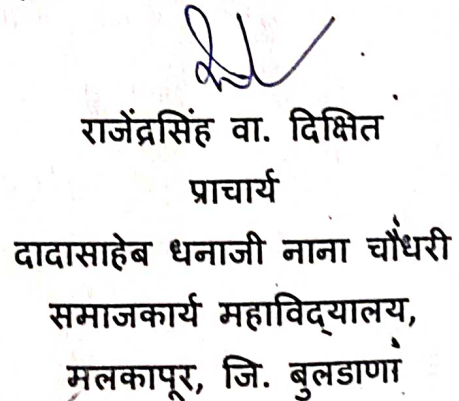 राजेंद्रसिंह वा. दिक्षित
प्राचार्य
दादासाहेब धनाजी नाना चौधरी
समाजकार्य महाविद्यालय,
मलकापूर, जि. बुलडाणा